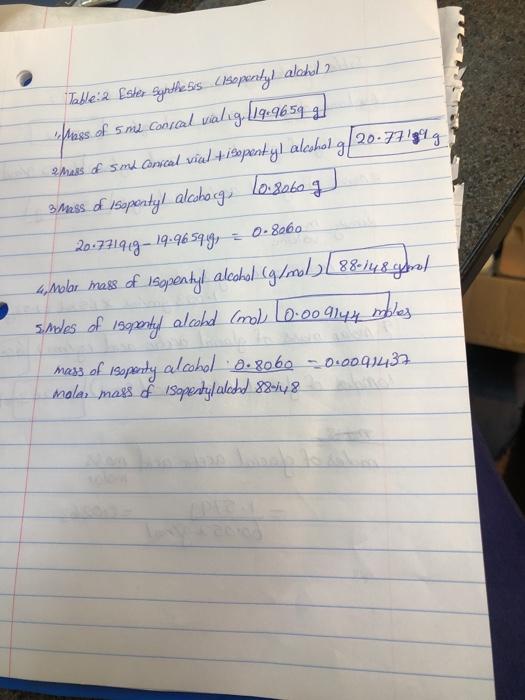 Table:2 Ester Synthesis (Isopentyl alcohol)
1, Mass of 5 mL conical vial, g. 19.9659 g
2 Mass of 5mL Conical vial + isopentyl alcohol g 20.7719 g
3 Mass of isopentyl alcohol g, 0.8060 g
20.7719(g) - 19.9659(g), = 0.8060
4, Molar mass of isopentyl alcohol (g/mol) 88.148 g/mol
5. Moles of isopentyl alcohol (mol) 0.009144 moles
mass of isopenty alcohol : 0.8060 = 0.0091437
molar mass of isopentyl alcohol 88.148